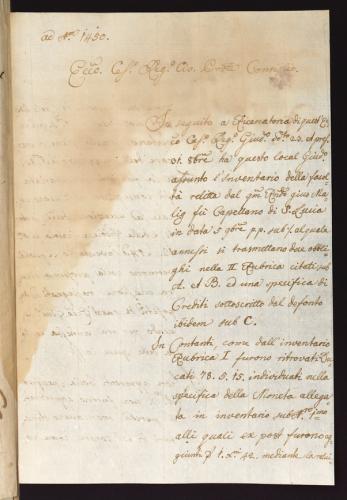 ad Nr. 1450.
Ecco. Ces. Reg. Cis. Consiglio.
In seguito a Ricercatoria di quest'
co Ces. Reg. Giud.
01. 8bre ha questo local Giud.
assunto l'Inventario della facol-
tà relitta dal qm Giuseppe
fu Capellano di S. Lucia
in data 5 9bre p.p. sub ·/. al quale
annessi si trasmettano due obbli-
ghi nella II Rubrica citati sub
A. et B. ed una specifica di
Crediti sottoscritto dal defonto
ibidem sub C.
In Contanti, come dall'inventario
Rubrica I furono ritrovati Du-
cati 78. 5. 15. individuati nella
specifica della Moneta allega-
ta in inventario sub
alli quali ex post furono ag-
giunti 42. mediante la